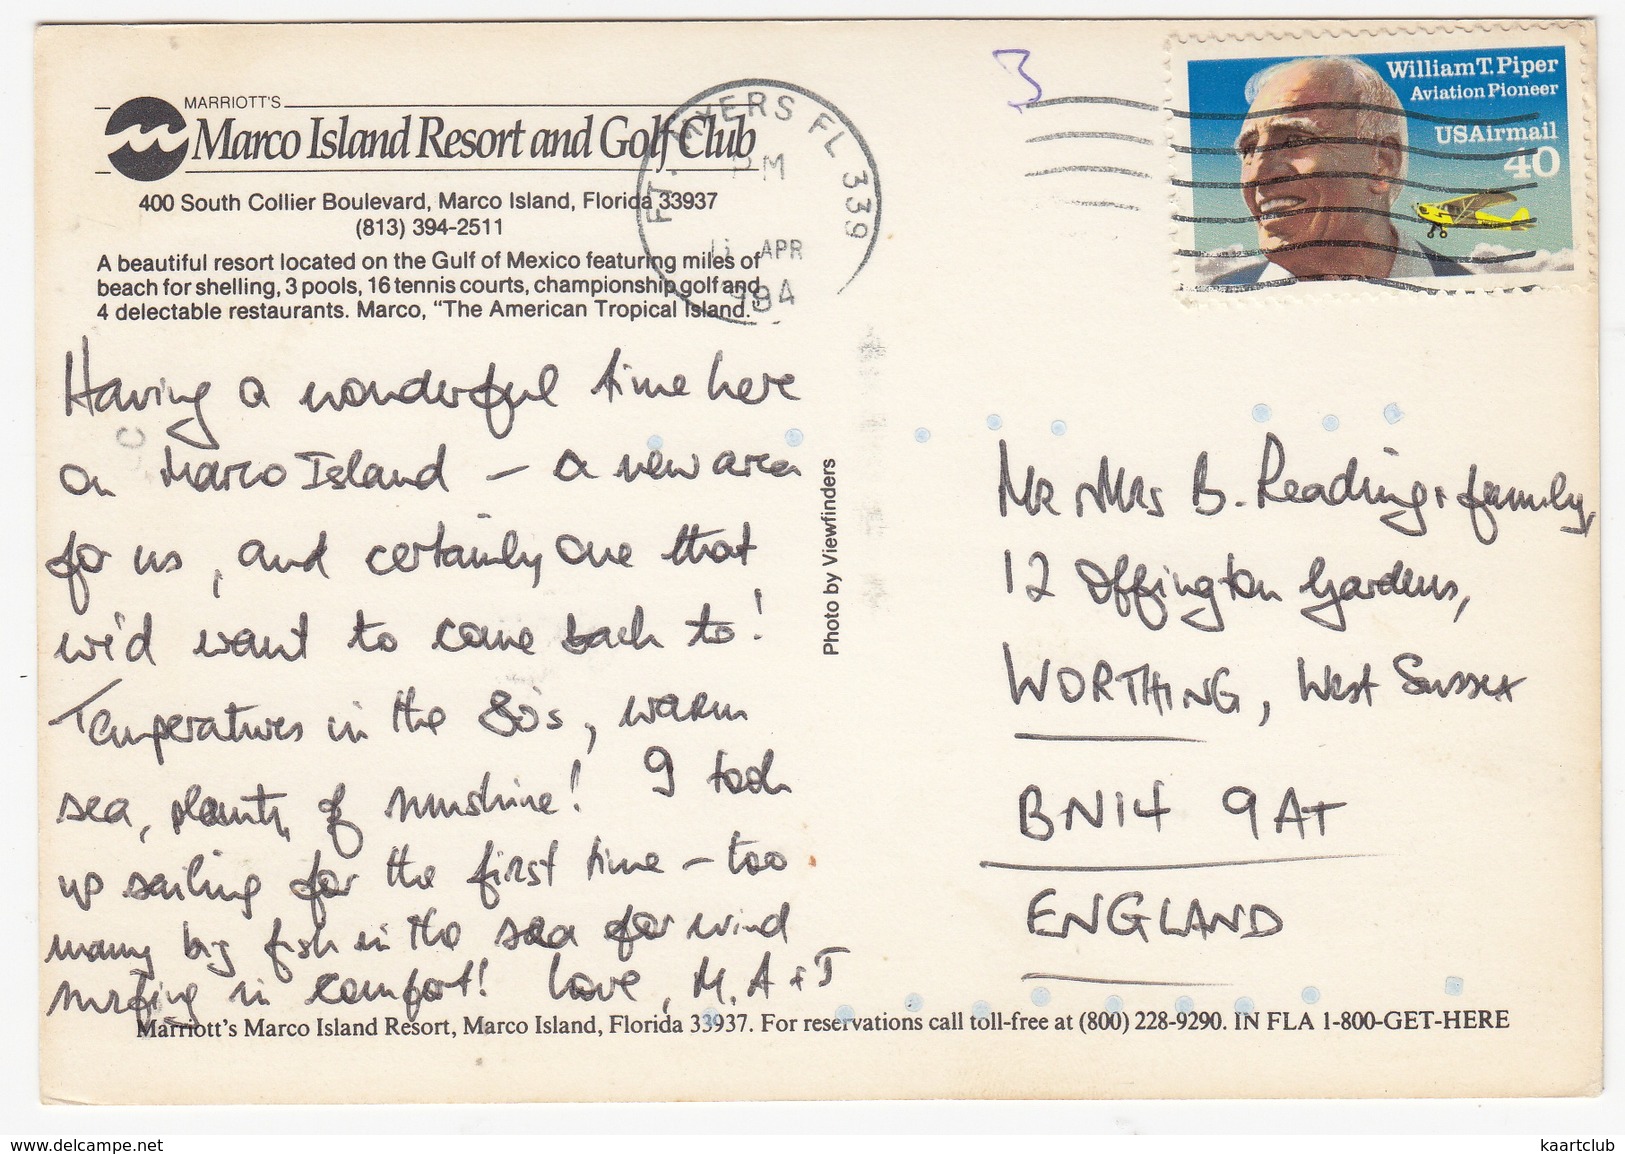 MARRIOTT'S
Marco Island Resort and Golf Club
400 South Collier Boulevard, Marco Island, Florida 33937
(813) 394-2511
A beautiful resort located on the Gulf of Mexico featuring miles of
beach for shelling, 3 pools, 16 tennis courts, championship golf and
4 delectable restaurants. Marco, "The American Tropical Island."
FT. MYERS FL 339
PM
APR
994
3
William T. Piper
Aviation Pioneer
USAirmail
40
Having a wonderful time here
on Marco Island – a new area
for us, and certainly one that
we'd want to come back to!
Temperatures in the 80's, warm
sea, plenty of sunshine! I took
up sailing for the first time – too
many big fish in the sea for wind
surfing in comfort! Love, M, A + J
Photo by Viewfinders
Mr + Mrs B. Reading + family,
12 Offington Gardens,
WORTHING, West Sussex
BN14 9AT
ENGLAND
Marriott's Marco Island Resort, Marco Island, Florida 33937. For reservations call toll-free at (800) 228-9290. IN FLA 1-800-GET-HERE
www.delcampe.net
kaartclub